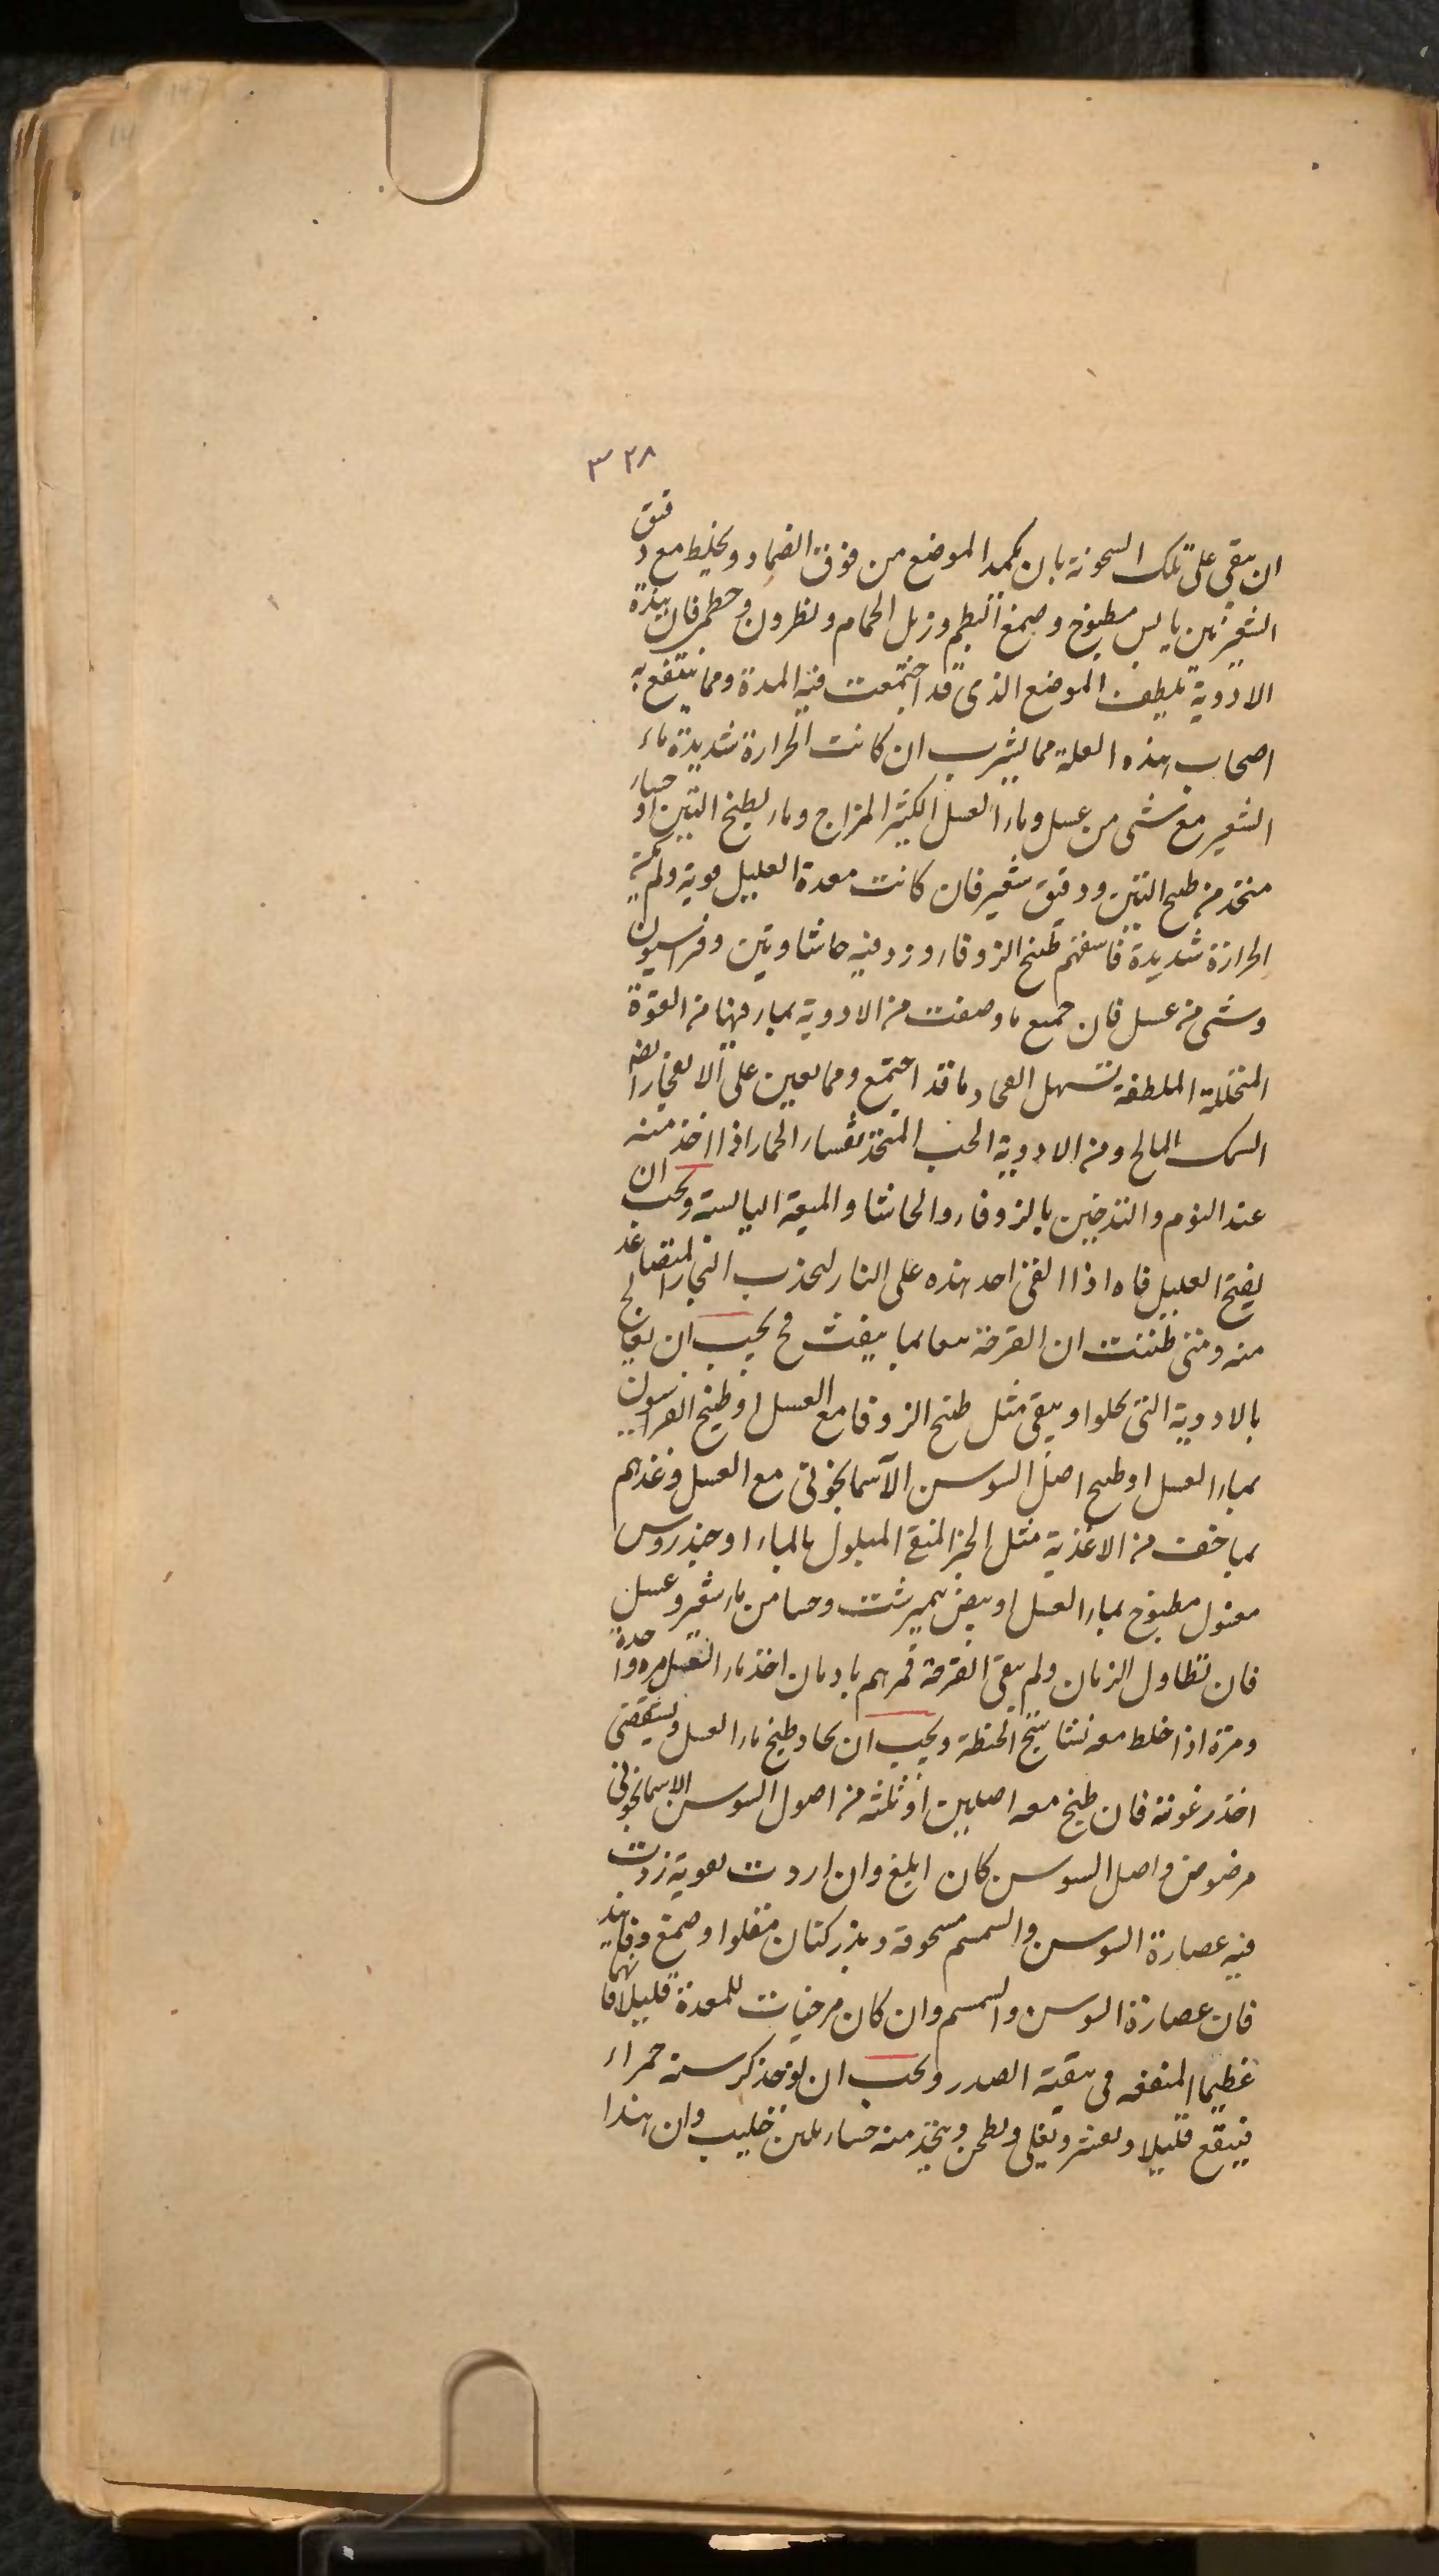 ٣٢٨
ان يبقى على تلك السخونة بان يكمد الموضع من فوق الضماد ويخلط مع دقيق
الشعير تين يابس مطبوخ وصمغ البطم وزبل الحمام ونطرون وخطمى فان هذه
الادوية تلطف الموضع الذى قد اجتمعت فيه المدة ومما ينتفع به
اصحاب هذه العلة مما يشرب ان كانت الحرارة شديدة ماء
الشعير مع شى من عسل وماء العسل الكثير المزاج وماء طبيخ التين او حساء
متخذ من طبيخ التين ودقيق شعير فان كانت معدة العليل قوية ولم
الحرارة شديدة فاسقهم طبيخ الزوفاء وزد فيه حاشا وتين وفراسيون
وشى من عسل فان جميع ما وصفت من الادوية بما فيها من القوة
المحللة الملطفة تسهل انفجار ما قد اجتمع ومما يعين على الانفجار ايضا
السمك المالح ومن الادوية الحب المتخذ بقثاء الحمار اذا اخذ منه
عند النوم والتدخين بالزوفاء والحاشا والميعة اليابسة ويجب ان
يفتح العليل فاه اذا القى احد هذه على النار ليجذب البخار المتصاعد
منه ومتى ظننت ان القرحة بما ينفث فح يجب ان يعالج
بالادوية التى تجلوا وينقى مثل طبيخ الزوفا مع العسل او طبيخ الفراسيون
بماء العسل او طبيخ اصل السوسن الآسمانجونى مع العسل وغذهم
بما خف من الاغذية مثل الخبز المنقع المبلول بالماء او خندروس
مغسول مطبوخ بماء العسل او بيض نيمبرشت وحسا من ماء شعير وعسل
فان تطاول الزمان ولم ينقى القرحة فمرهم بادمان اخذ ماء العسل مرة واحدة
ومرة اذا خلط معه نشا ستج الحنطة ويجب ان يجاد طبخ ماء العسل ويستقصى
اخذ رغوته فان طبخ معه اصلين او ثلثة من اصول السوسن الاسمانجونى
مرضوض واصل السوسن كان ابلغ وان اردت تقويته زدت
فيه عصارة السوسن والسمسم مسحوقة وبذر كتان مقلوا وصمغ وفانيذ
فان عصارة السوسن والسمسم وان كان مرخيات للمعدة قليلا فانهما
عظيما المنفعة فى تنقية الصدر ويجب ان يؤخذ كرسنة حمراء
فينقع قليلا ويقشر ويقلى ويطحن ويتخذ منه حساء بلبن حليب وان هذا